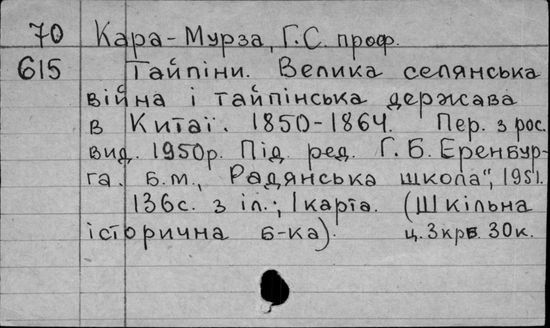 70 Кара-Мурза, Г.С. проф.
615 Тайпіни. Велика селянська
війна і тайпінська держава
в Китаї. 1850-1864. Пер. з рос.
вид. 1950р. Під ред. Г.Б. Еренбур-
га. б.м., „Радянська школа", 1951.
136с. з іл.; 1 карта. (Шкільна
історична б-ка). ц. 3крв. 30к.